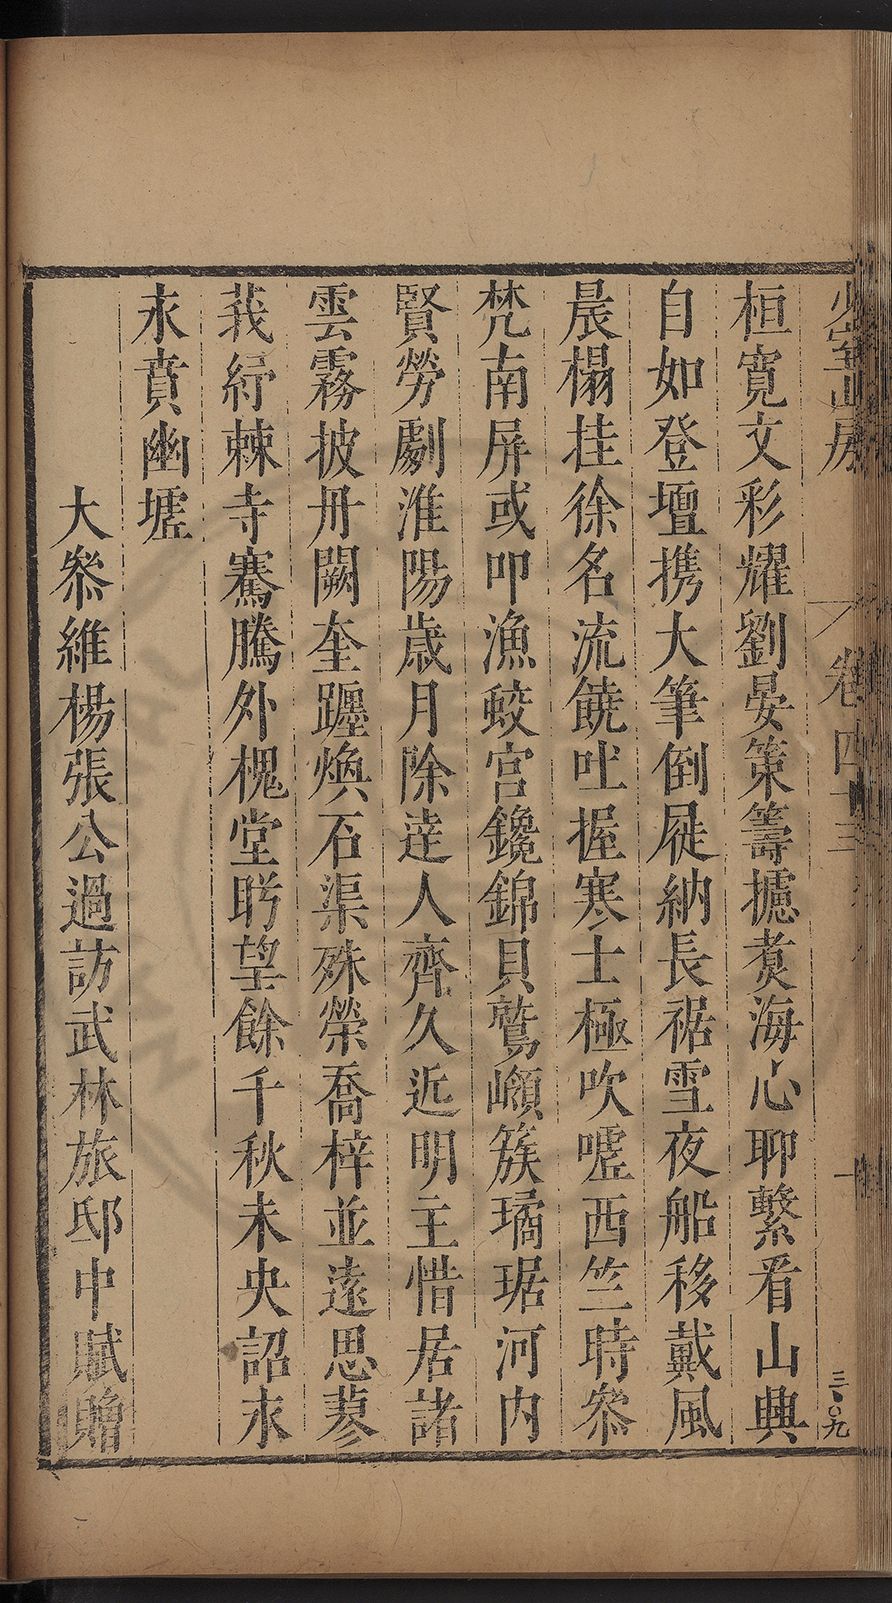 少室山房
卷四十三
三〇九
桓寛文彩耀劉晏策籌攄煑海心聊繫看山興
自如登壇携大筆倒屣納長裾雪夜船移戴風
晨榻挂徐名流饒吐握寒士極吹噓西竺時叅
梵南屏或叩漁鮫宫鑱錦貝鷲嶺簇璚琚河内
賢勞劇淮陽歳月除逹人齊久近明主惜居諸
雲霧披丹闕奎躔煥石渠殊榮喬梓並逺思蓼
莪紆棘寺騫騰外槐堂盻望餘千秋未央詔永
永賁幽墟
大叅維楊張公過訪武林旅邸中賦贈